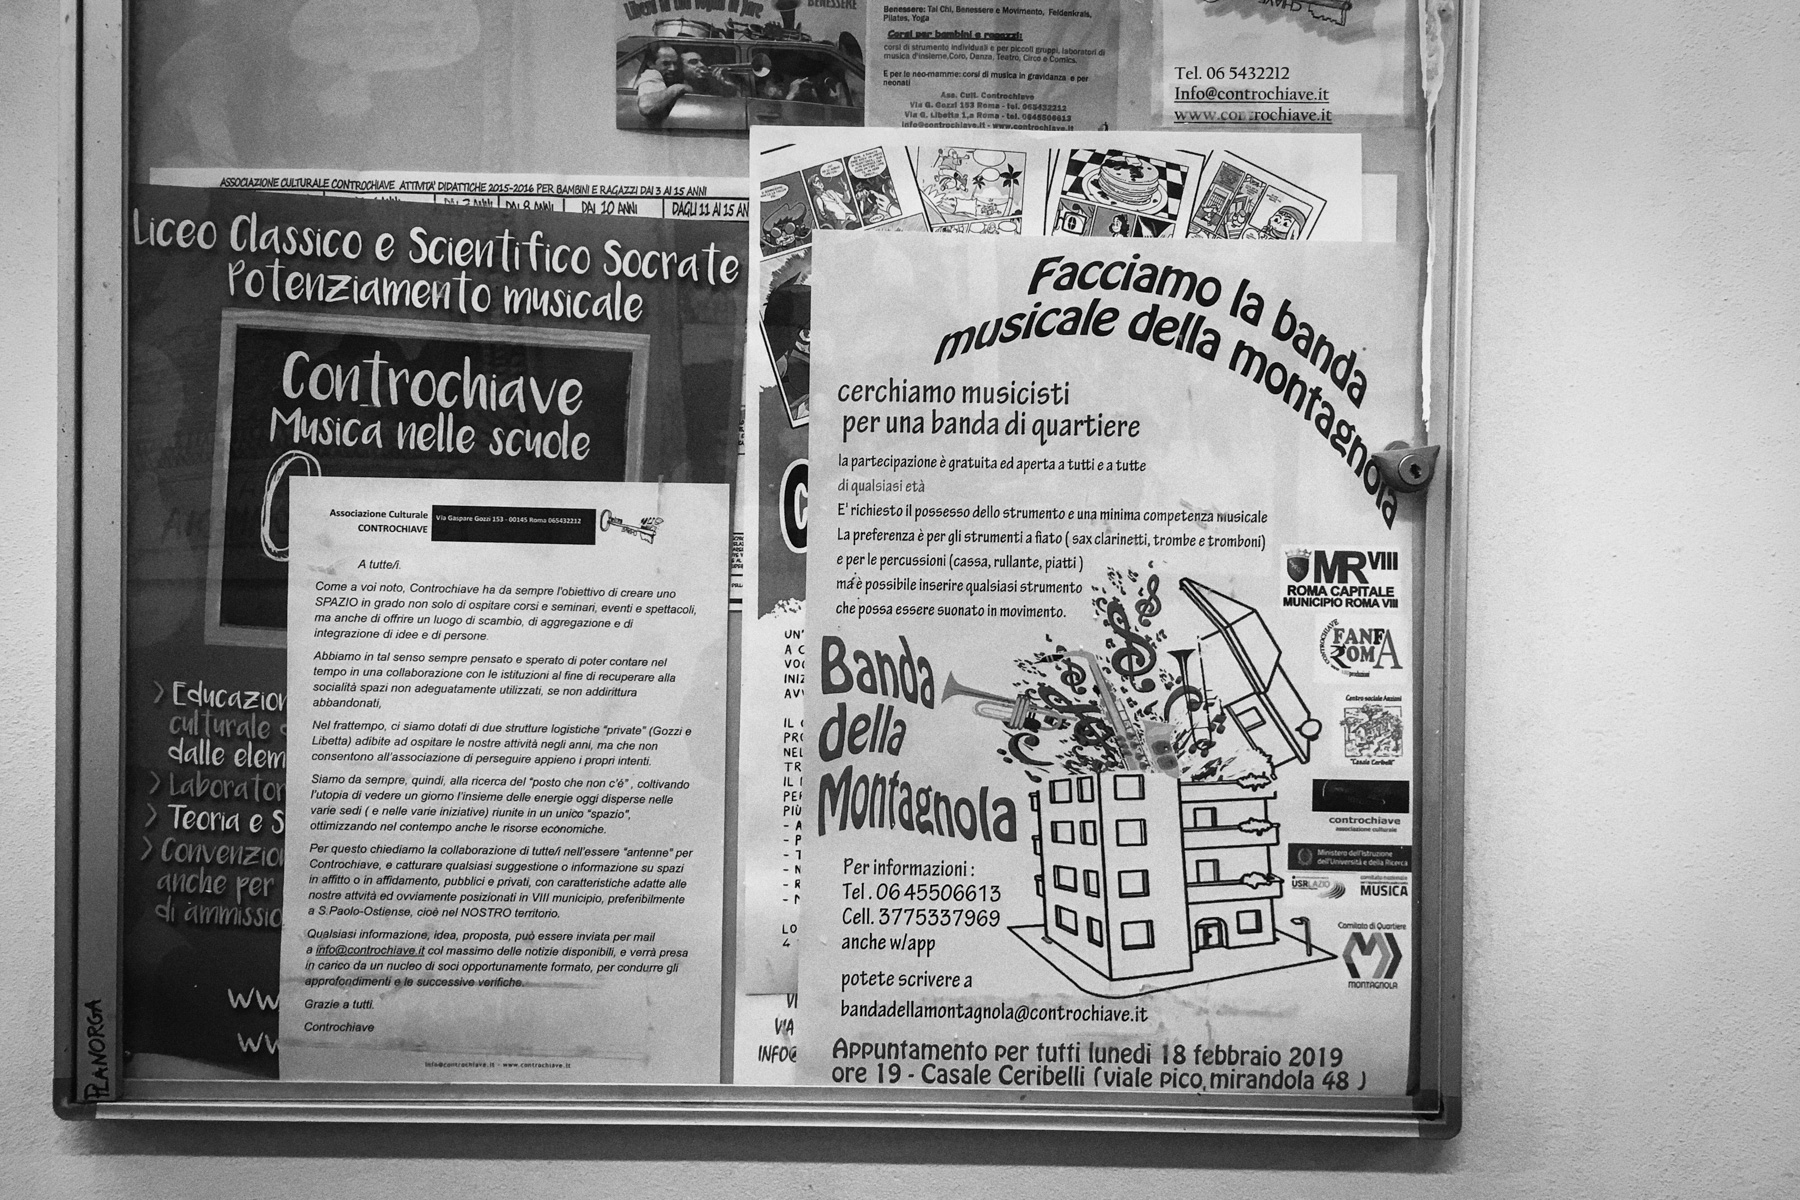 Liberi in con sogni in fare
BENESSERE
Benessere: Tai Chi, Benessere e Movimento, Feldenkrais,
Pilates, Yoga
Corsi per bambini e ragazzi:
corsi di strumento individuali e per piccoli gruppi, laboratori di
musica d'insieme, Coro, Danza, Teatro, Circo e Comics.
E per le neo-mamme: corsi di musica in gravidanza e per
neonati
Ass. Cult. Controchiave
Via G. Gozzi 153 Roma - tel. 065432212
Via G. Libetta 1,a Roma - tel. 0645506613
info@controchiave.it - www.controchiave.it
Tel. 06 5432212
Info@controchiave.it
www.controchiave.it
ASSOCIAZIONE CULTURALE CONTROCHIAVE ATTIVITA' DIDATTICHE 2015-2016 PER BAMBINI E RAGAZZI DAI 3 AI 15 ANNI
DAI 7 ANNI DAI 8 ANNI DAI 10 ANNI DAGLI 11 AI 15 AN
Liceo Classico e Scientifico Socrate
Potenziamento musicale
Controchiave
Musica nelle scuole
> Educazion
culturale
dalle elem
> Laborator
> Teoria e S
> Convenzion
anche per
di ammissio
ww
ww
PLANORGA
Associazione Culturale
CONTROCHIAVE
Via Gaspare Gozzi 153 - 00145 Roma 065432212
A tutte/i.
Come a voi noto, Controchiave ha da sempre l'obiettivo di creare uno
SPAZIO in grado non solo di ospitare corsi e seminari, eventi e spettacoli,
ma anche di offrire un luogo di scambio, di aggregazione e di
integrazione di idee e di persone.
Abbiamo in tal senso sempre pensato e sperato di poter contare nel
tempo in una collaborazione con le istituzioni al fine di recuperare alla
socialità spazi non adeguatamente utilizzati, se non addirittura
abbandonati,
Nel frattempo, ci siamo dotati di due strutture logistiche "private" (Gozzi e
Libetta) adibite ad ospitare le nostre attività negli anni, ma che non
consentono all'associazione di perseguire appieno i propri intenti.
Siamo da sempre, quindi, alla ricerca del "posto che non c'è" , coltivando
l'utopia di vedere un giorno l'insieme delle energie oggi disperse nelle
varie sedi ( e nelle varie iniziative) riunite in un unico "spazio",
ottimizzando nel contempo anche le risorse economiche.
Per questo chiediamo la collaborazione di tutte/i nell'essere "antenne" per
Controchiave, e catturare qualsiasi suggestione o informazione su spazi
in affitto o in affidamento, pubblici e privati, con caratteristiche adatte alle
nostre attvità ed ovviamente posizionati in VIII municipio, preferibilmente
a S.Paolo-Ostiense, cioè nel NOSTRO territorio.
Qualsiasi informazione, idea, proposta, può essere inviata per mail
a info@controchiave.it col massimo delle notizie disponibili, e verrà presa
in carico da un nucleo di soci opportunamente formato, per condurre gli
approfondimenti e le successive verifiche.
Grazie a tutti.
Controchiave
info@controchiave.it - www.controchiave.it
UN'
A C
VOC
INIZ
AVV
IL
PRO
NEL
TR
IL
PER
PIÙ
- A
- P
- T
- N
- R
LO
VI
VIA
INFO@
Facciamo la banda
musicale della montagnola
cerchiamo musicisti
per una banda di quartiere
la partecipazione è gratuita ed aperta a tutti e a tutte
di qualsiasi età
E' richiesto il possesso dello strumento e una minima competenza musicale
La preferenza è per gli strumenti a fiato ( sax clarinetti, trombe e tromboni)
e per le percussioni (cassa, rullante, piatti )
ma è possibile inserire qualsiasi strumento
che possa essere suonato in movimento.
Banda
della
Montagnola
Per informazioni :
Tel . 06 45506613
Cell. 3775337969
anche w/app
potete scrivere a
bandadellamontagnola@controchiave.it
Appuntamento per tutti lunedi 18 febbraio 2019
ore 19 - Casale Ceribelli (viale pico, mirandola 48 )
MR VIII
ROMA CAPITALE
MUNICIPIO ROMA VIII
CONTROCHIAVE
FANFA
ROMA
produzioni
Centro sociale Anziani
"Casale Ceribelli"
controchiave
associazione culturale
Ministero dell'Istruzione
dell'Università e della Ricerca
USRLAZIO
comitato nazionale
MUSICA
Comitato di Quartiere
MONTAGNOLA